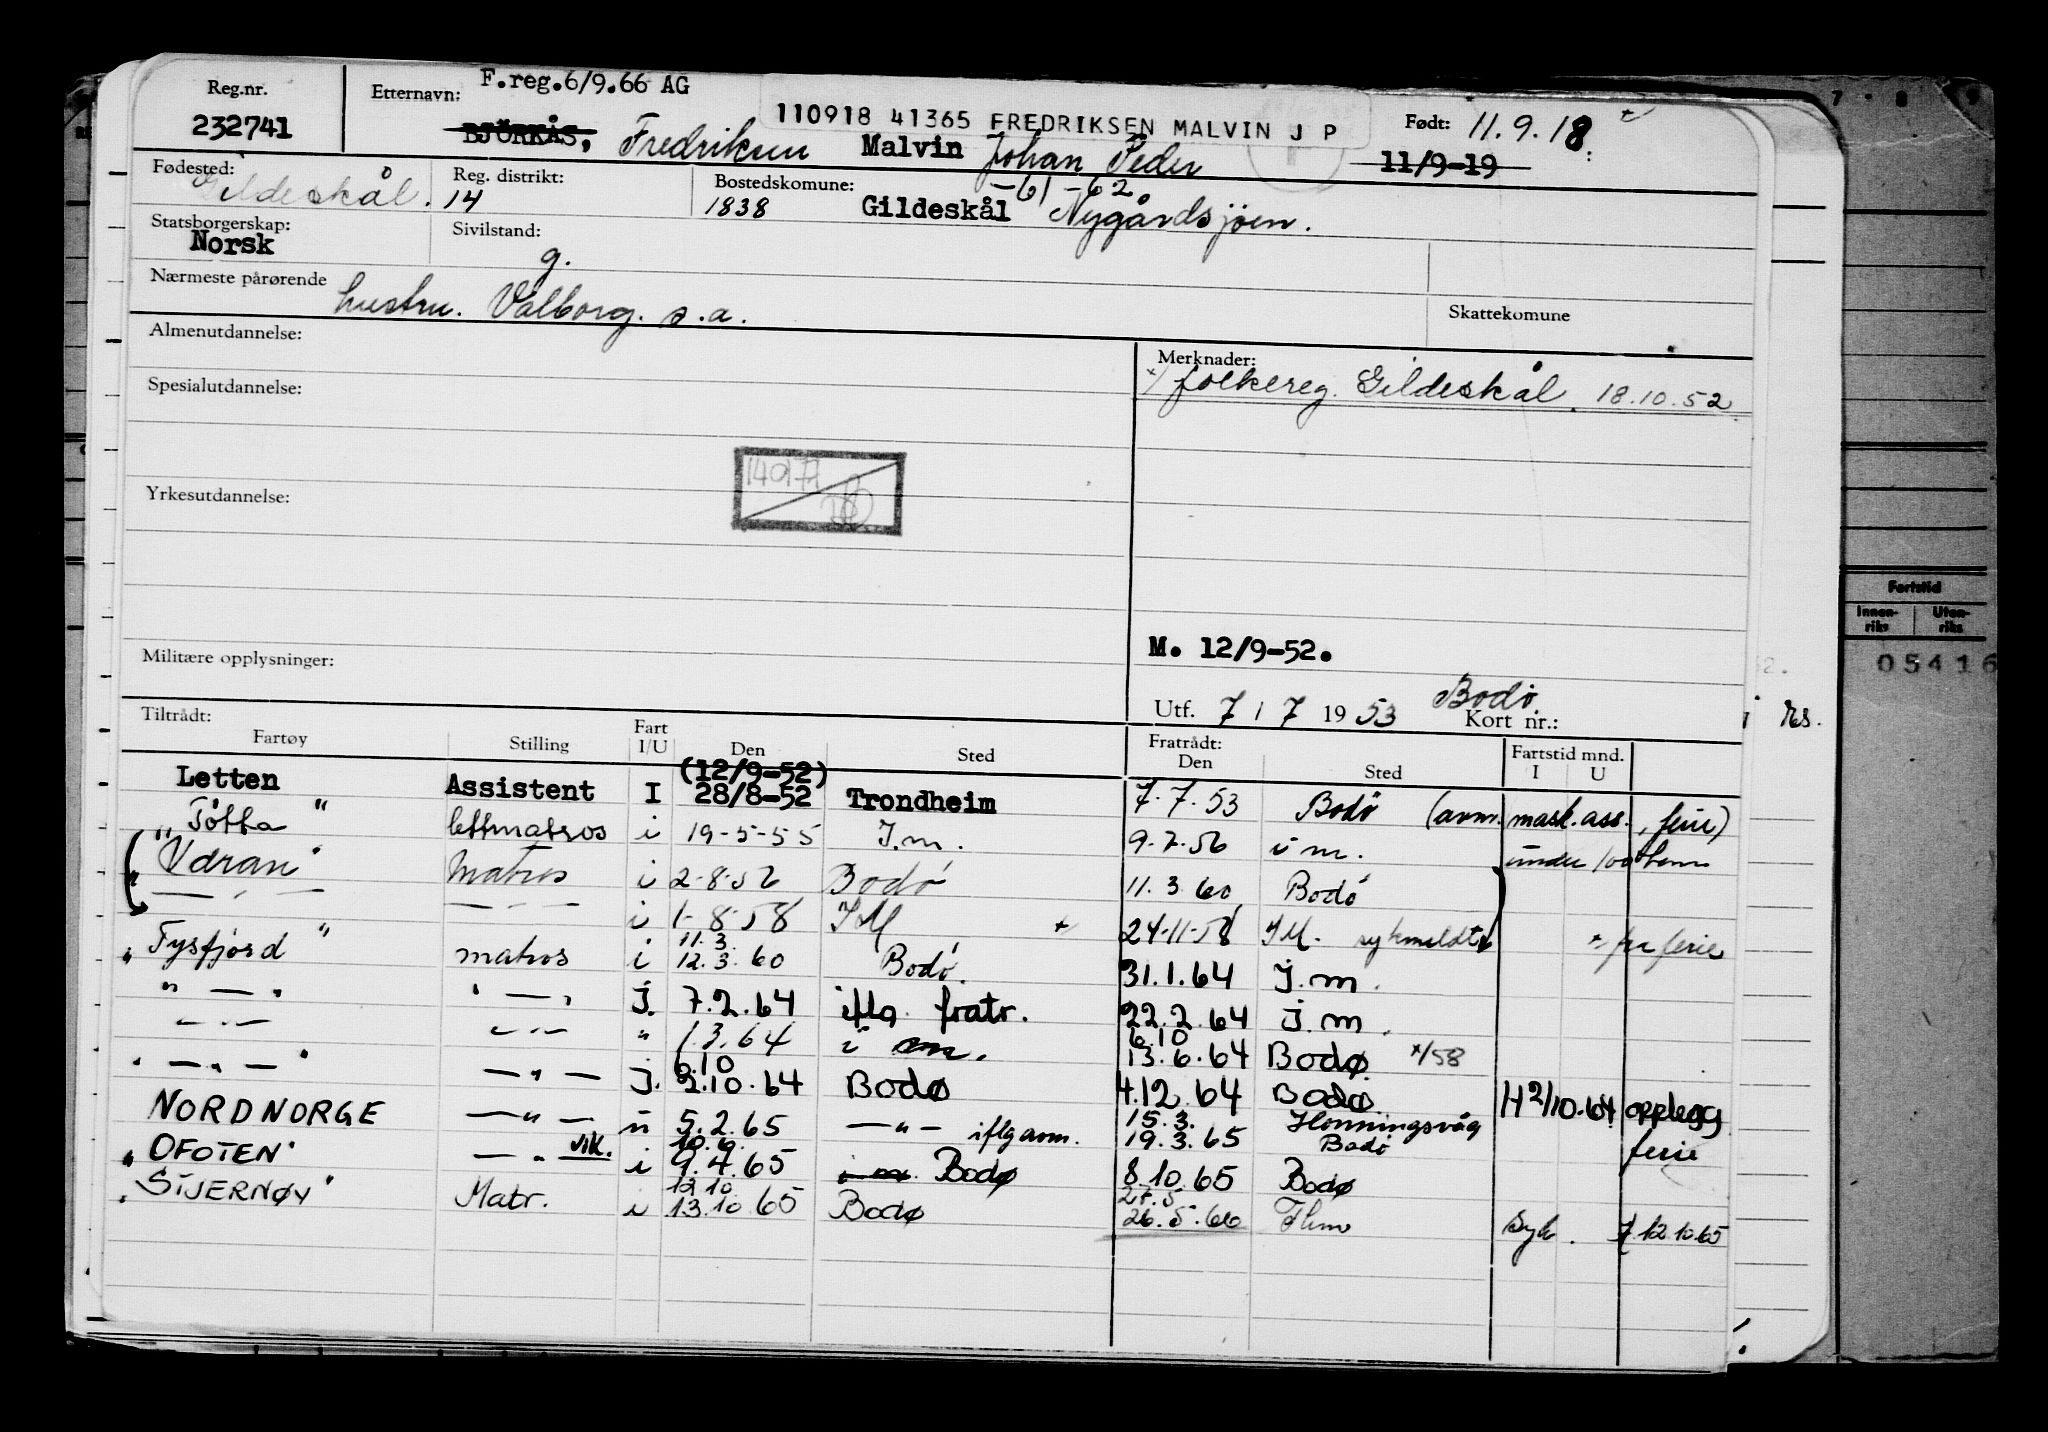 Reg.nr. Etternavn: F.reg.6/9.66 AG
110918 41365 FREDRIKSEN MALVIN J P
Født: 11.9.18
232741 BJÖRKÅS, Fredriksen Malvin Johan Peder 11/9-19
Fødested: Gildeskål. Reg. distrikt: 14 Bostedskomune: 1838 Gildeskål -61-62. Nygårdsjöen.
Statsborgerskap: Norsk Sivilstand: g.
Nærmeste pårørende hustru. Valborg. s.a.
Skattekomune
Almenutdannelse:
Merknader:
x) folkereg. Gildeskål. 18.10.52
Spesialutdannelse:
Yrkesutdannelse:
Militære opplysninger:
M. 12/9-52.
Utf. 7/7 1953 Bodø Kort nr.:
Tiltrådt: Fratrådt:
Fartøy Stilling Fart I/U Den Sted Den Sted Fartstid mnd. I U
Letten Assistent I (12/9-52) 28/8-52 Trondheim 7.7.53 Bodø (avm. mask.ass., ferie)
"Tøtta" lettmatros i 19-5-55 T.m. 9.7.56 i m. under 100 tonn
"Væran" matros i 2-8-56 Bodø 11.3.60 Bodø
— " — — " — i 1-8-58 TM x 24-11-58 TM. sykmeldt x fra ferie
"Tysfjord" matros i 11.3. 12.3.60 Bodø. 31.1.64 T.m.
" — " " — " J. 7.2.64 iflg fratr. 22.2.64 J.m.
" — " — " — " 1.3.64 i m. 6.10 13.6.64 Bodø x/58
" — " — " — " — J. 6.10 2.10.64 Bodø 4.12.64 Bodø H 2/10.64 opplegg
NORDNORGE — " — u 5.2.65 — " — iflg avm. 15.3. 19.3.65 Honningsvåg Bodø ferie
"OFOTEN" — " — vik. i 10.6. 9.4.65 i m Bodø 8.10.65 Bodø
"STJERNØY" Matr. i 12.10. 13.10.65 Bodø 27.5 26.5.66 Thm Syk. f 12.10.65
7 8 9
Fartstid
Innen-riks Uten-riks
05416